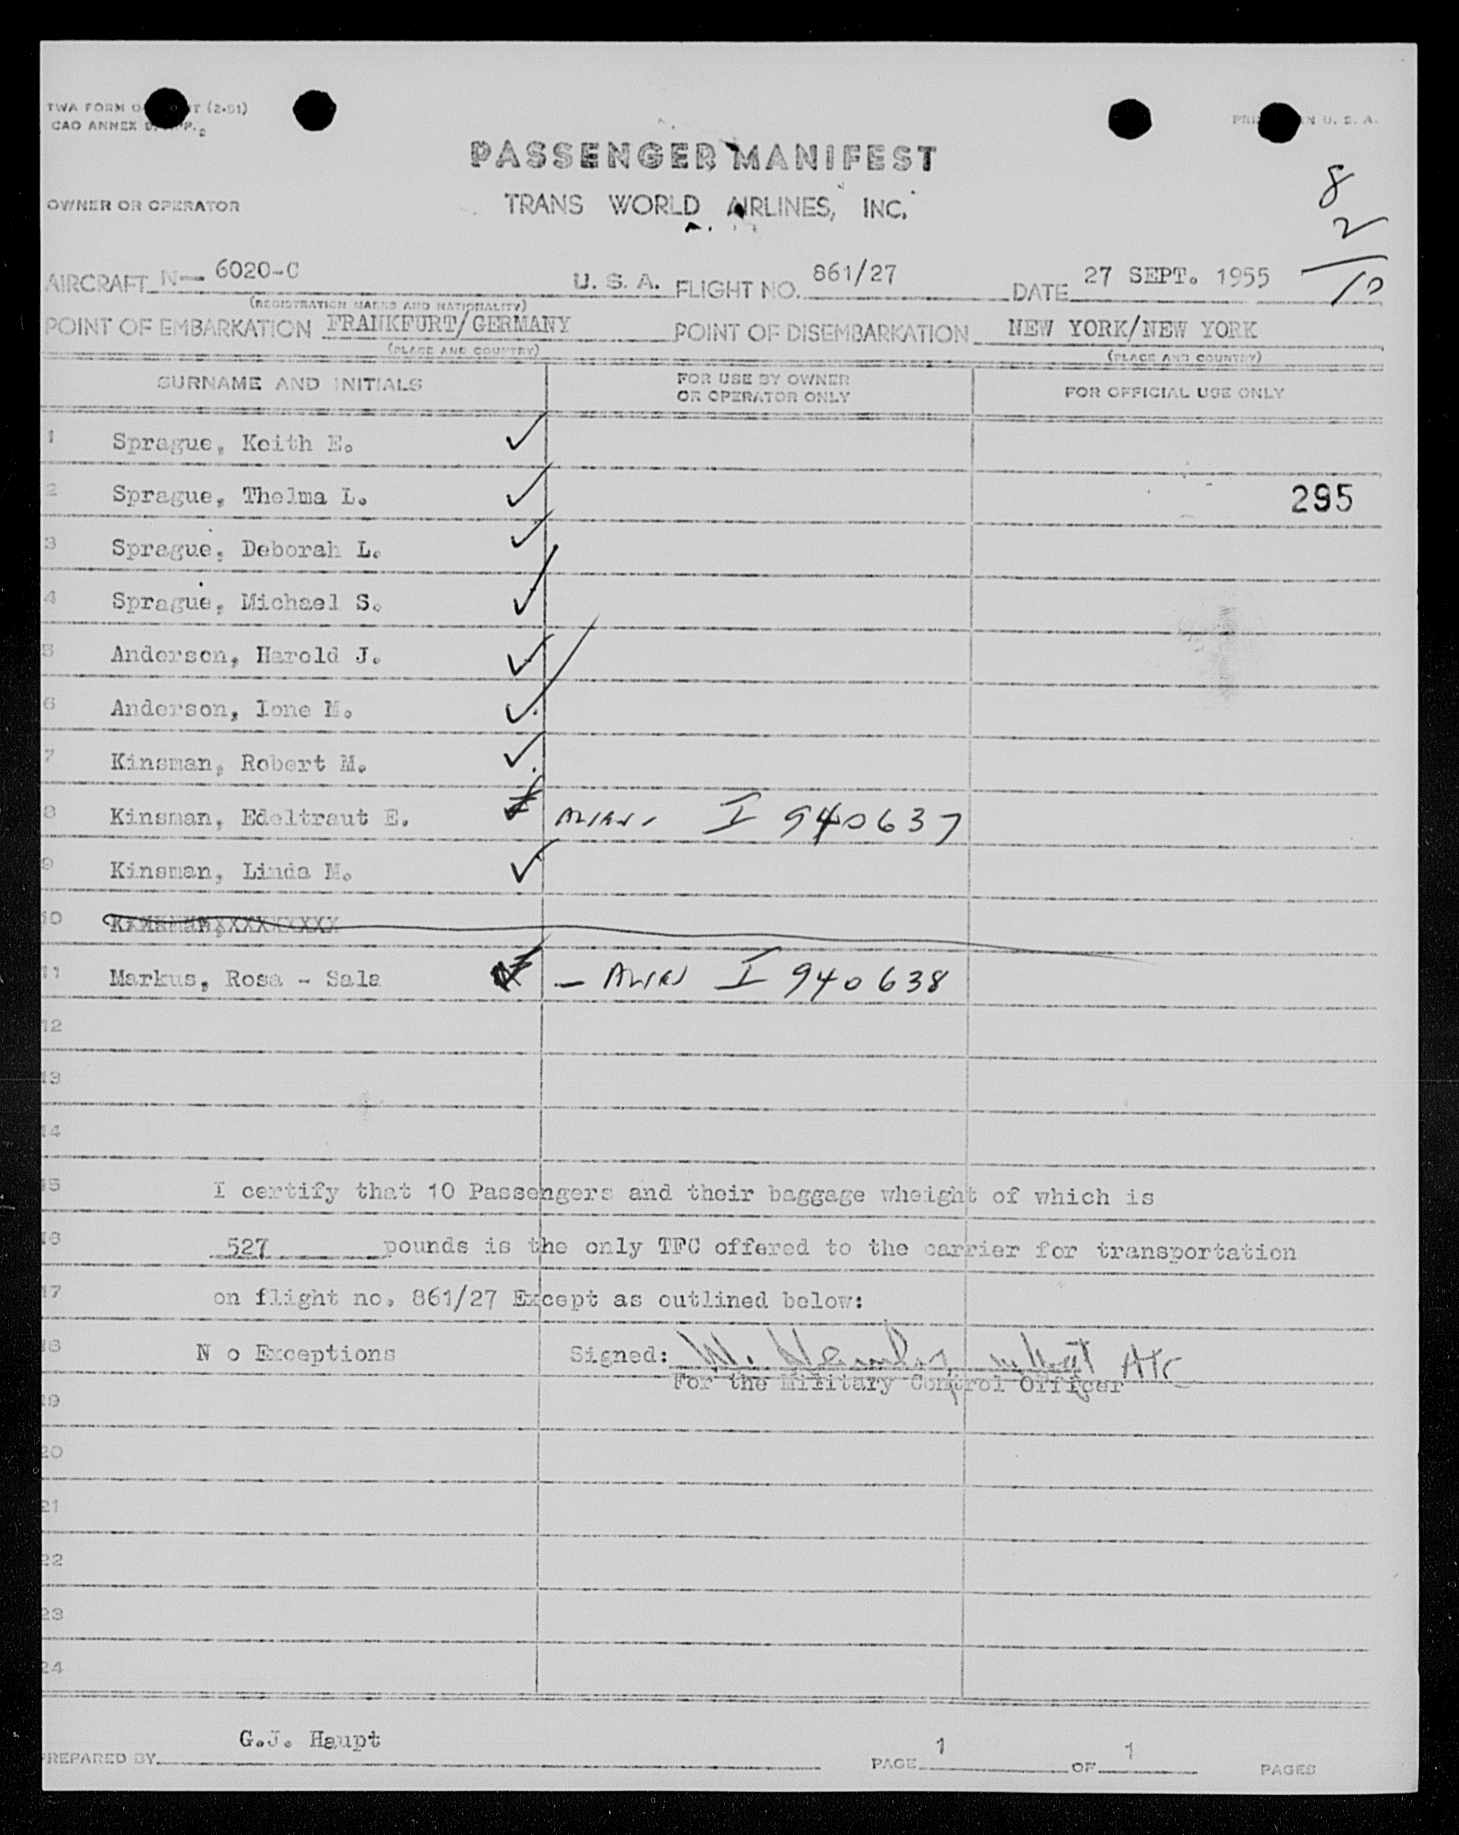 TWA FORM (2-51)
CAO ANNEX
PASSENGER MANIFEST
TRANS WORLD AIRLINES, INC.
OWNER OR OPERATOR
8
2
10
AIRCRAFT N— 6020-C U. S. A. FLIGHT NO. 861/27 DATE 27 SEPT. 1955
(REGISTRATION MARKS AND NATIONALITY)
POINT OF EMBARKATION FRANKFURT/GERMANY POINT OF DISEMBARKATION NEW YORK/NEW YORK
(PLACE AND COUNTRY) (PLACE AND COUNTRY)
SURNAME AND INITIALS FOR USE BY OWNER OR OPERATOR ONLY FOR OFFICIAL USE ONLY
1 Sprague, Keith E. ✓
2 Sprague, Thelma L. ✓ 295
3 Sprague, Deborah L. ✓
4 Sprague, Michael S. ✓
5 Anderson, Harold J. ✓
6 Anderson, Ione M. ✓
7 Kinsman, Robert M. ✓
8 Kinsman, Edeltraut E. ALIEN - I 940637
9 Kinsman, Linda M. ✓
10
11 Markus, Rosa - Sala — ALIEN I 940638
12
13
14
15 I certify that 10 Passengers and their baggage wheight of which is
16 527 pounds is the only TFC offered to the carrier for transportation
17 on flight no. 861/27 Except as outlined below:
18 N o Exceptions Signed:
For the Military Control Officer
19
20
21
22
23
24
G.J. Haupt
PREPARED BY PAGE 1 OF 1 PAGES